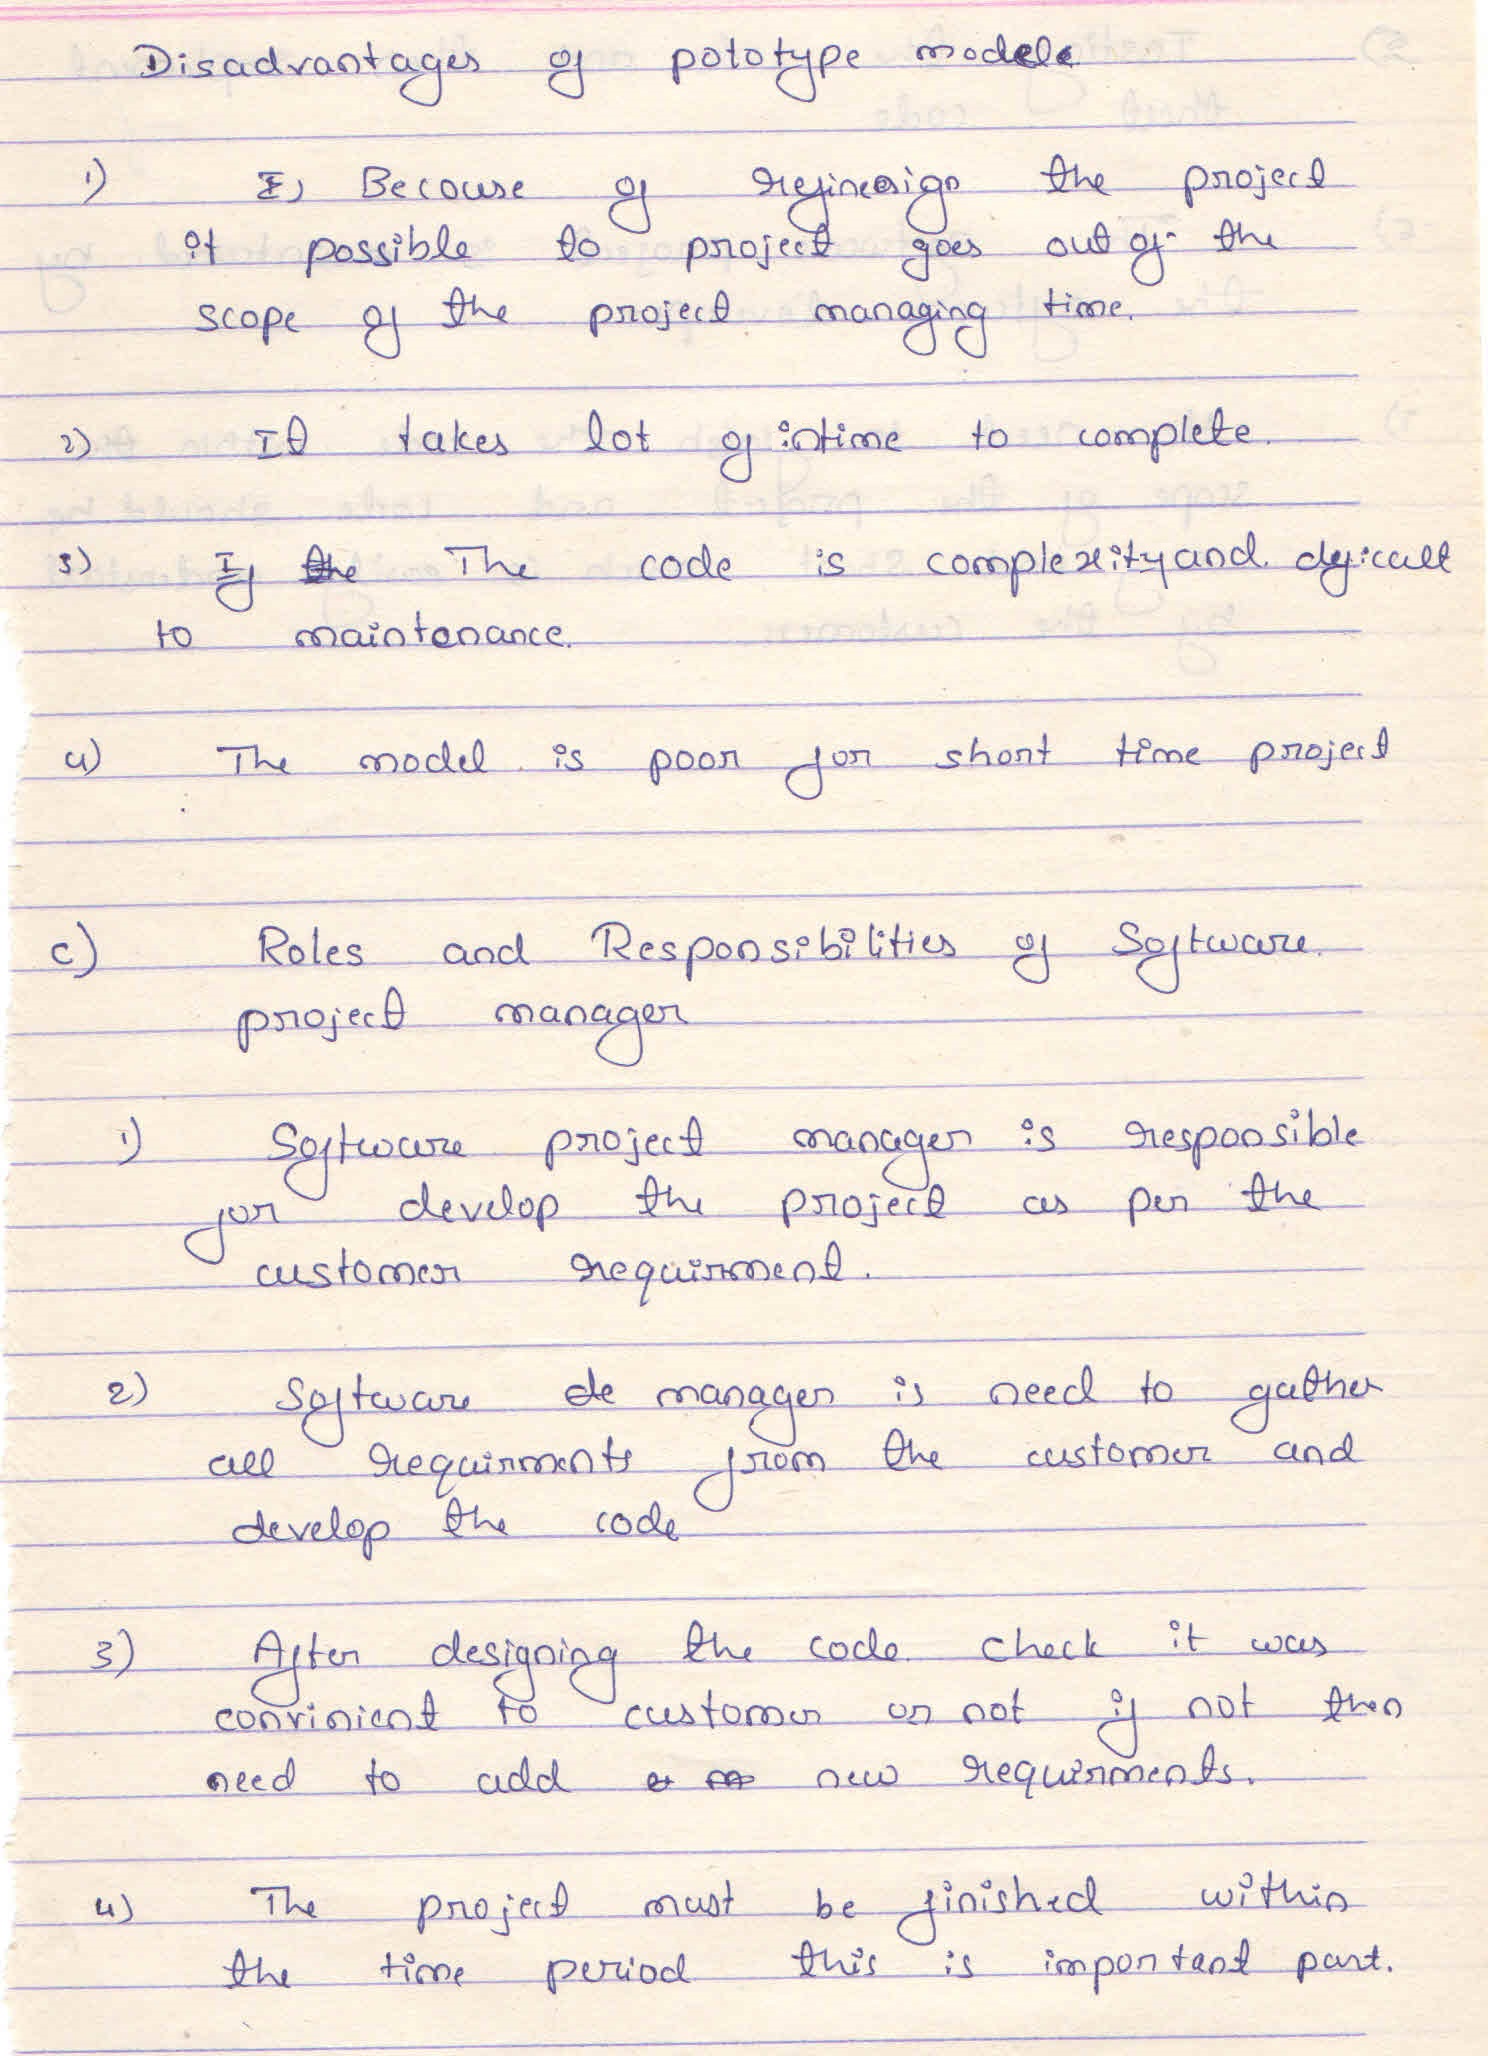 Disadvantages of pototype modele
1) I, Becouse of refinesign the project
it possible to project goes out of the
scope of the project managing time.
2) It takes lot of intime to complete.
3) If the The code is complexityand deficult
to maintenance.
4) The model is poor for short time project
c) Roles and Responsibilities of Software
project manager
1) Software project manager is responsible
for develop the project as per the
customer requirment.
2) Software de manager is need to gather
all requirments from the customer and
develop the code
3) After designing the code check it was
convinient to customer or not if not then
need to add new requirments.
4) The project must be finished within
the time period this is important part.